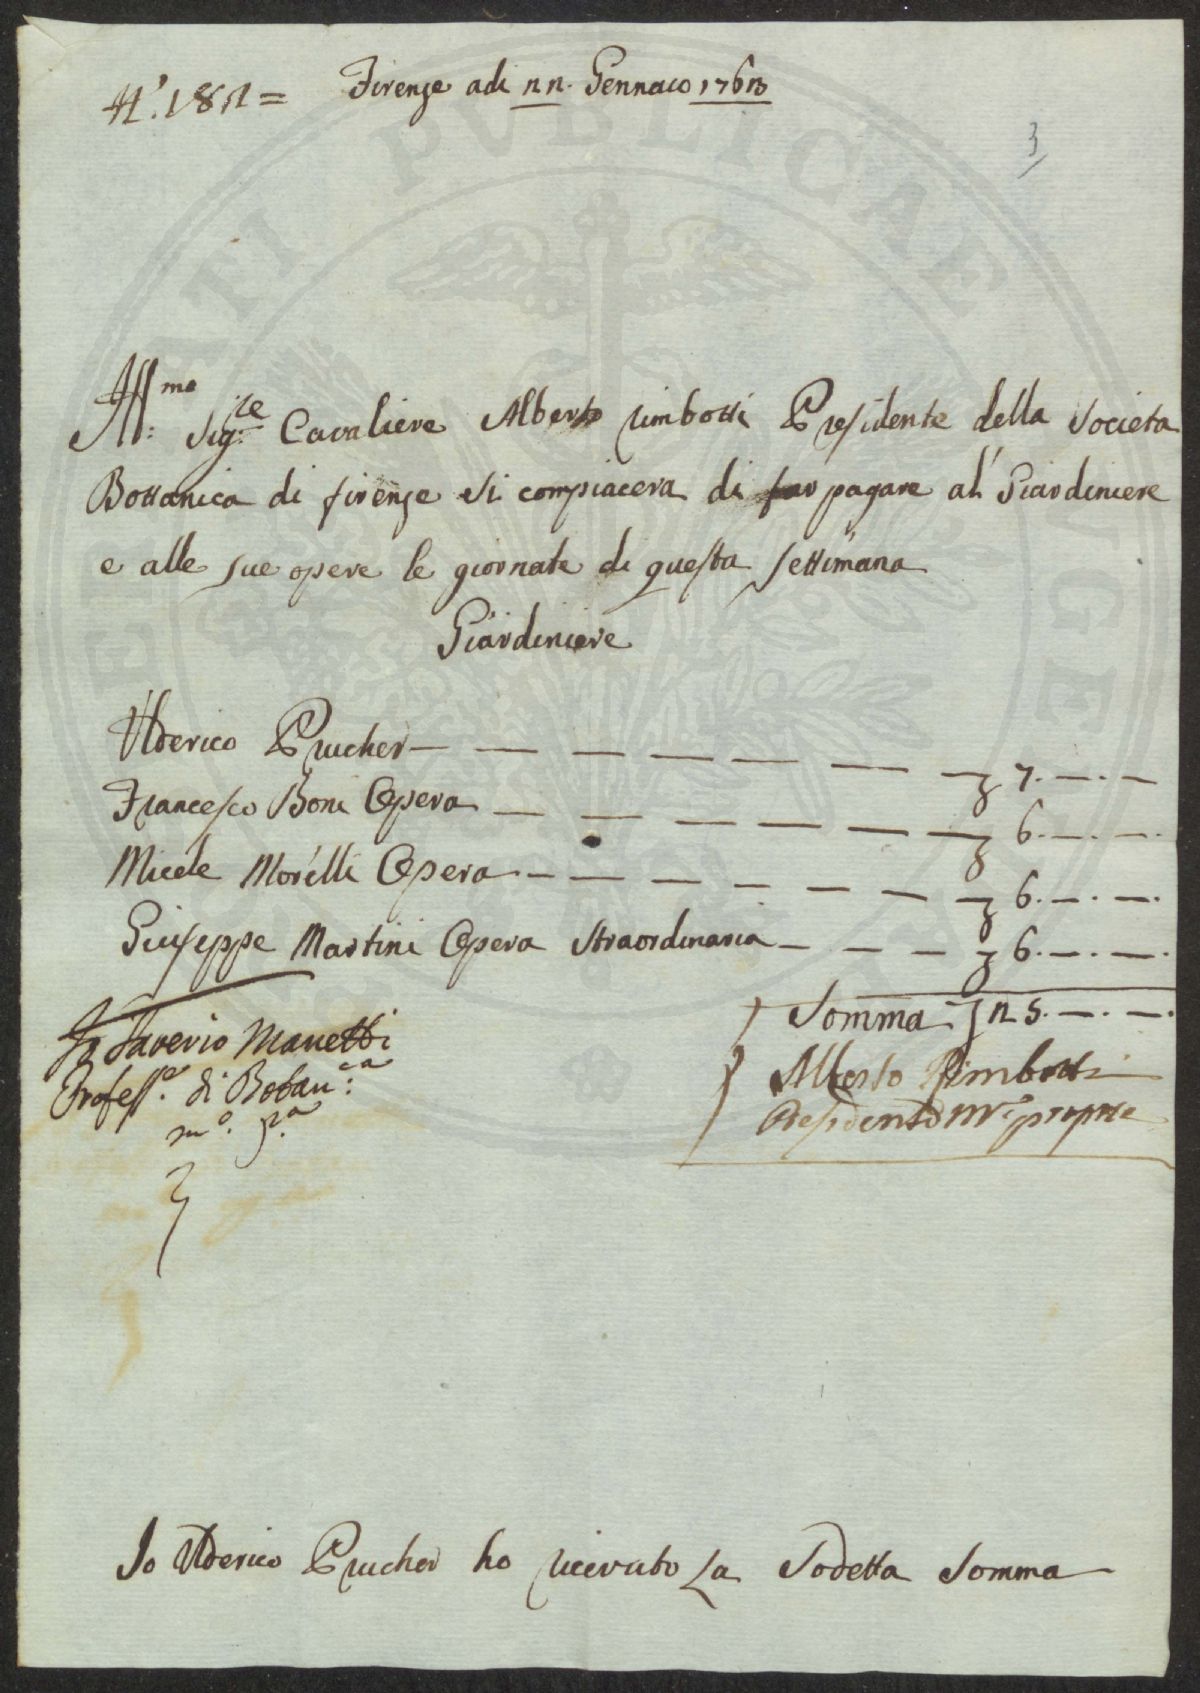 N.° 182 =
Firenze adi 22. Gennaio 1763
3
Ill:mo Sig:re Cavaliere Alberto rimbotti Presidente della Societa
Bottanica di firenze si compiacera di far pagare al' Giardiniere
e alle sue opere le giornate di questa settimana
Giardiniere
Ulderico Prucher — — — — — — — 7. —. —
Francesco Boni Opera — — — — — — 6. —. —.
Micele Morelli Opera — — — — — — 6. —. —.
Giuseppe Martini Opera straordinaria — — — 6. —. —.
Somma 25. —. —.
Io Saverio Manetti
Profess.e di Botan:ca
m.o p.a
Alberto Rimbotti
Presidente mo propria
Io Ulderico Prucher ho ricevuto La Sodetta Somma